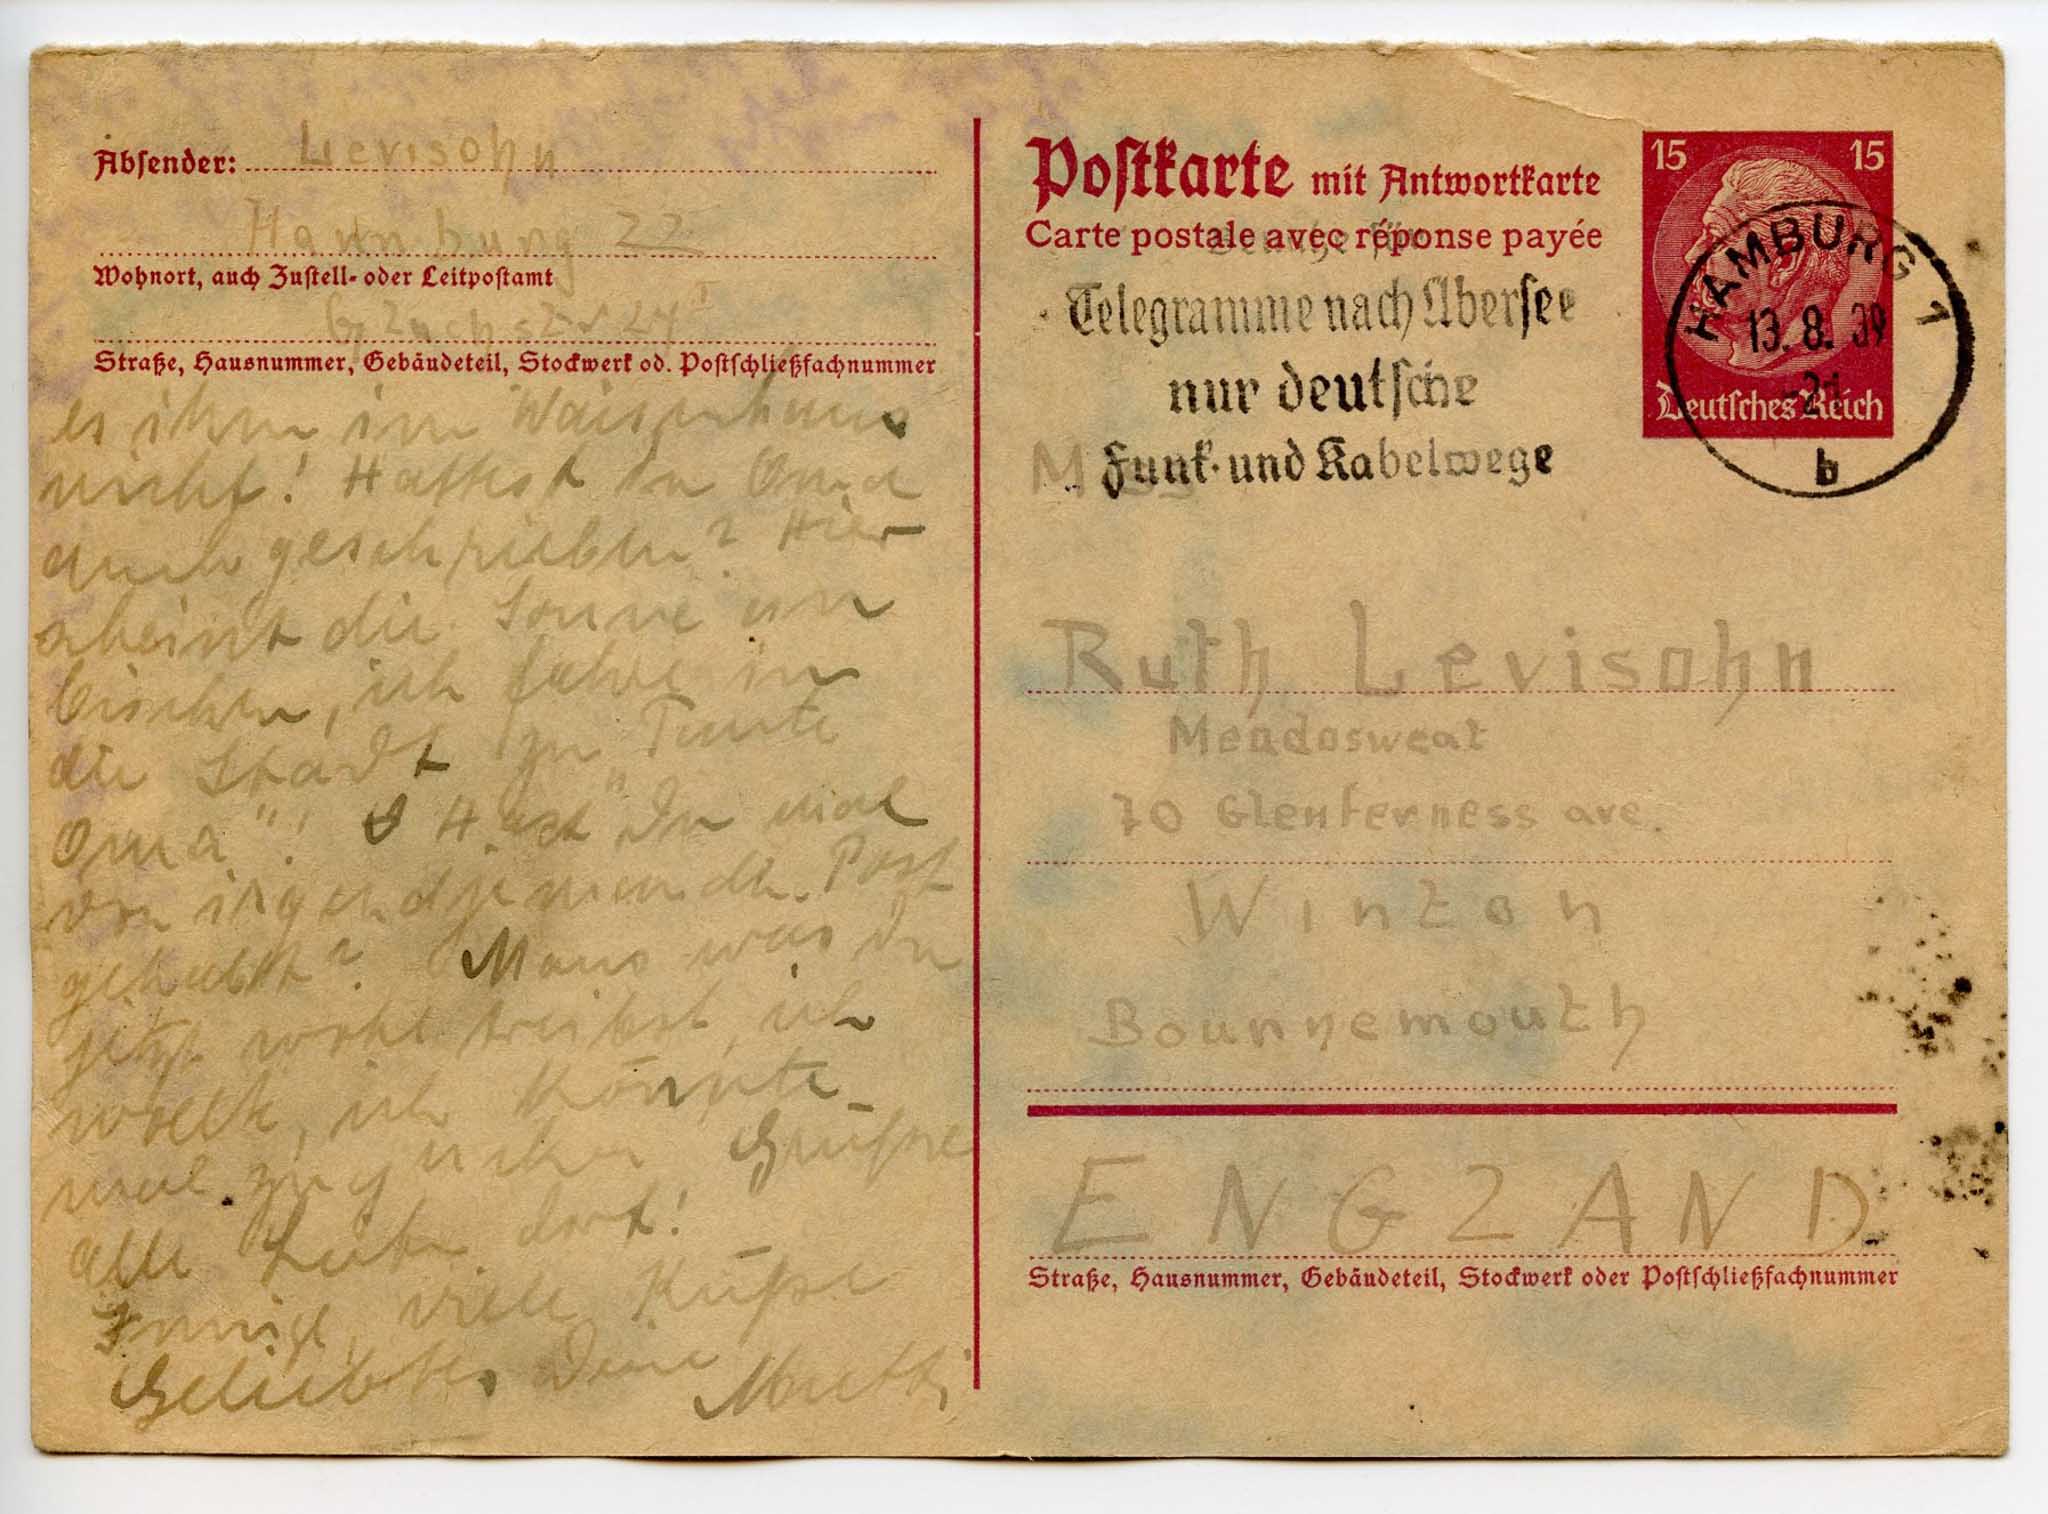 Absender: Levisohn
Hamburg 22
Wohnort, auch Zustell- oder Leitpostamt
24 I
Straße, Hausnummer, Gebäudeteil, Stockwerk od. Postschließfachnummer
es ihm im Waisenhaus
nicht! Hattest du Oma
auch geschrieben? Hier
scheint die Sonne ein
bischen, ich fahre in
die Stadt zu "Tante
Oma"! Hast Du mal
von irgendjemanden Post
gehabt? Maus was Du
jetzt wohl treibst, ich
wollte, ich könnte
mal zugucken. Grüsse
alle Leute dort!
Innige, viele Küsse
Geliebtes, Deine Mutti
Postkarte mit Antwortkarte
Carte postale avec réponse payée
Telegramme nach Übersee
nur deutsche
Funk- und Kabelwege
15 15
Deutsches Reich
HAMBURG 1
13. 8. 39
-21
b
Ruth Levisohn
Meadosweat
70 Glenferness ave.
Winton
Bournemouth
ENGLAND
Straße, Hausnummer, Gebäudeteil, Stockwerk oder Postschließfachnummer